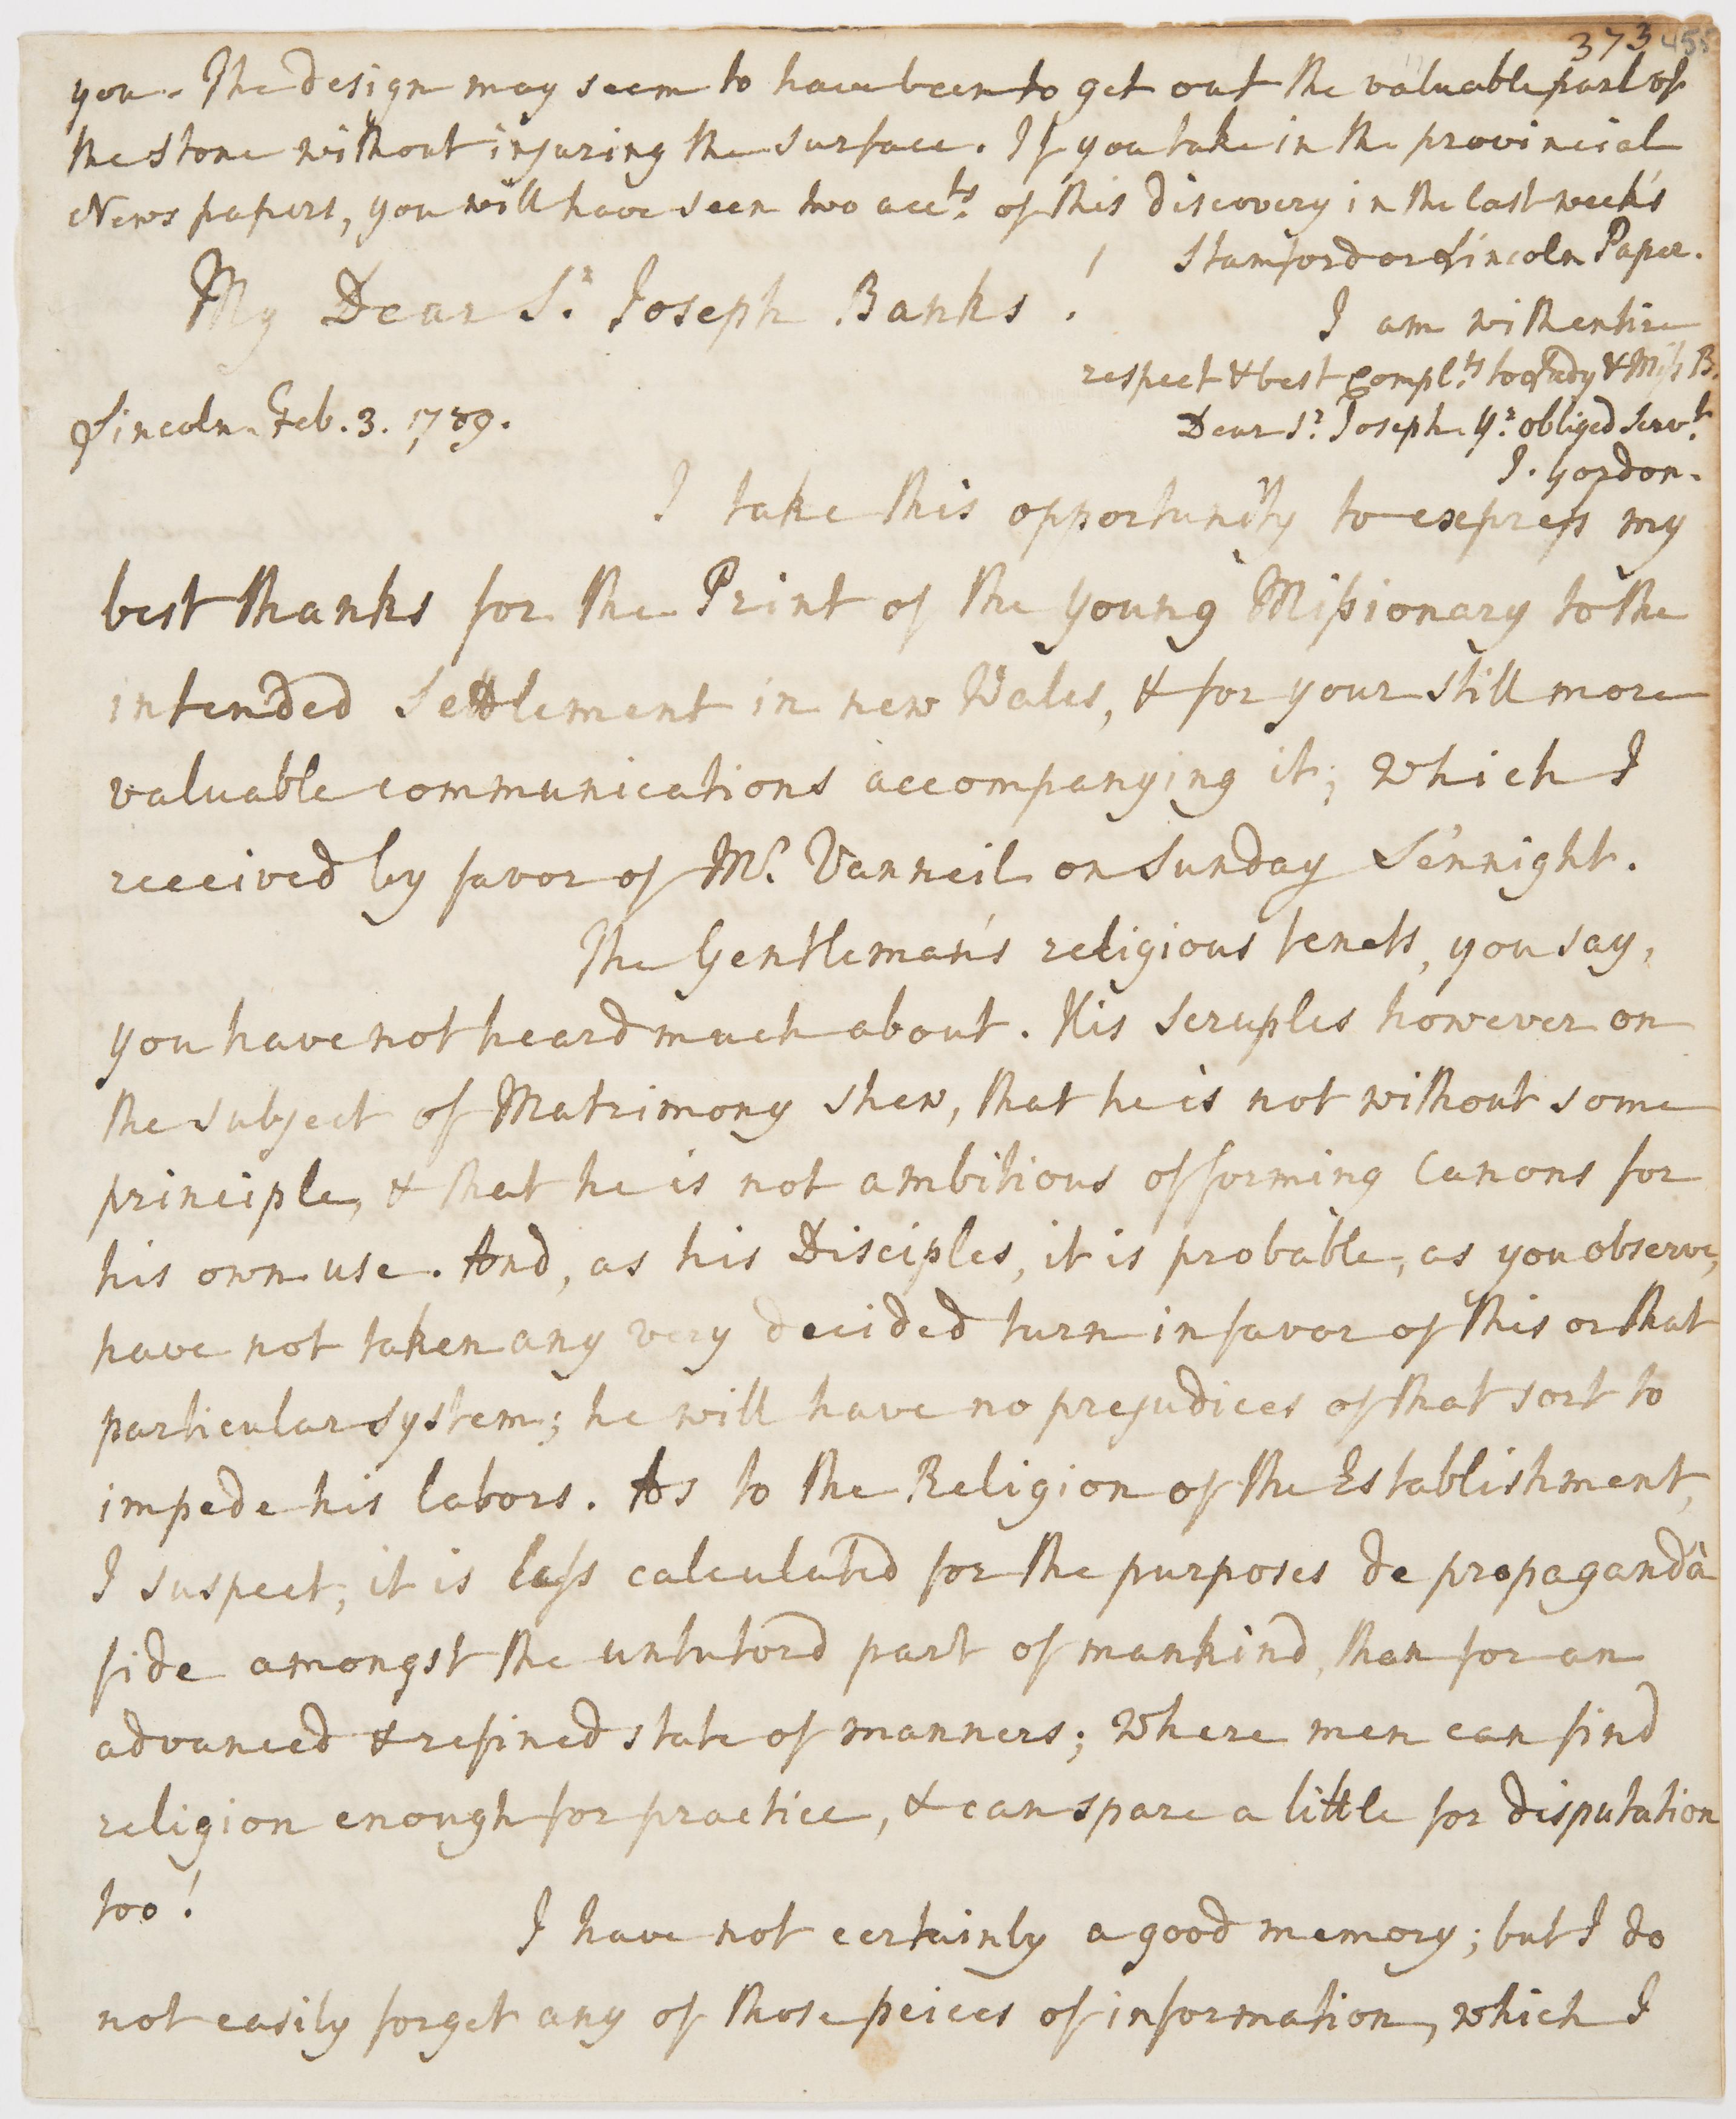 373 455
you. The design may seem to have been to get out the valuable part of
the stone without injuring the surface. If you take in the provincial
News papers, you will have seen two acc.ts of this discovery in the last week's
Stamford or Lincoln Paper.
My Dear S.r Joseph Banks !
I am with entire
respect & best Compl.ts to Lady & Miss B.
Lincoln. Feb. 3. 1789.
Dear S.r Joseph Y.r obliged Serv.t
J. Gordon.
I take this opportunity to express my
best thanks for the Print of the Young Missionary to the
intended Settlement in new Wales, & for your still more
valuable communications accompanying it; which I
received by favor of M.r Vanneil on Sunday Se'nnight.
The Gentleman's religious tenets, you say,
you have not heard much about. His scruples however on
the subject of Matrimony shew, that he is not without some
principle, & that he is not ambitious of forming Canons for
his own use. And, as his Disciples, it is probable, as you observe,
have not taken any very decided turn in favor of this or that
particular system; he will have no prejudices of that sort to
impede his labors. As to the Religion of the Establishment,
I suspect, it is less calculated for the purposes de propagandâ
fide amongst the untutord part of mankind, than for an
advanced & refined state of manners; where men can find
religion enough for practice, & can spare a little for disputation
too!
I have not certainly a good memory; but I do
not easily forget any of those peices of information, which I